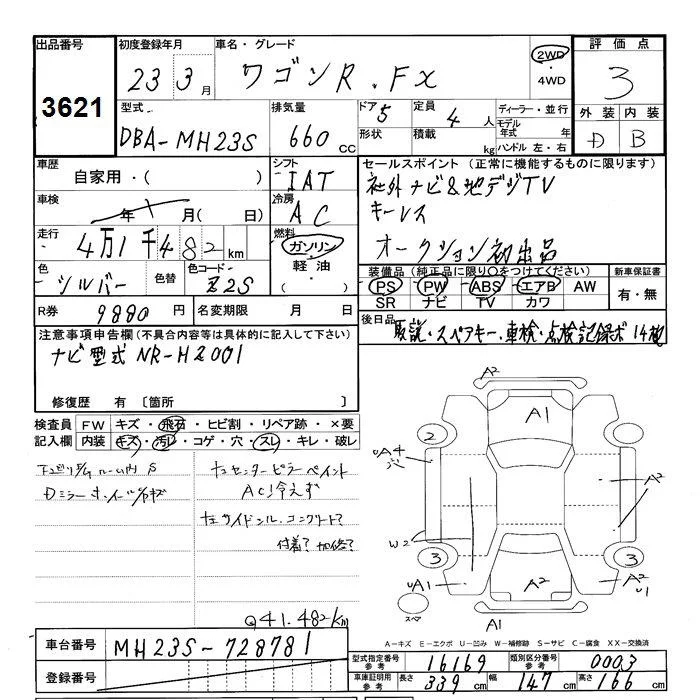 出品番号 初度登録年月 車名・グレード 評価点
3621
23 3月 ワゴンR.FX 2WD ・4WD 3
型式 排気量 ドア 5 定員 4人 ディーラー・並行 外装 内装
DBA-MH23S 660cc 形状 積載 kg モデル年式 年 D B
ハンドル 左・右
車歴 シフト セールスポイント(正常に機能するものに限ります)
自家用・( ) IAT 社外ナビ&地デジTV
車検 冷房 キーレス
年 月( 日) AC オークション初出品
走行 燃料
4万1千482km ガソリン・軽油・( )
色 色替 色コード 装備品(純正品に限り○をつけてください) 新車保証書
シルバー Z2S PS PW ABS エアB AW 有・無
SR ナビ TV カワ
R券 9880円 名変期限 月 日 後日品
取説・スペアキー.車検・点検記録ボ14枚
注意事項申告欄(不具合内容等は具体的に記入して下さい)
ナビ型式 NR-H2001
修復歴 有 〔箇所
検査員 FW キズ・飛石・ヒビ割・リペア跡・×要
記入欄 内装 キズ・汚レ・コゲ・穴・スレ・キレ・破レ
S ナセンターピラーペイント
Dミラー AC冷えず
サイドシル.コンクリート?
付着?
Q41.482km
A2
A1
2
UA4
穴
A2
W2
3 3
UA1 A2 A2
U1
スペア A1
A-キズ E-エクボ U-凹み W-補修跡 S-サビ C-腐食 XX-交換済
車台番号 MH23S-728781
登録番号
型式指定番号 参考 16169 類別区分番号 参考 0003
車庫証明用 参考 長さ 339cm 幅 147cm 高さ 166cm